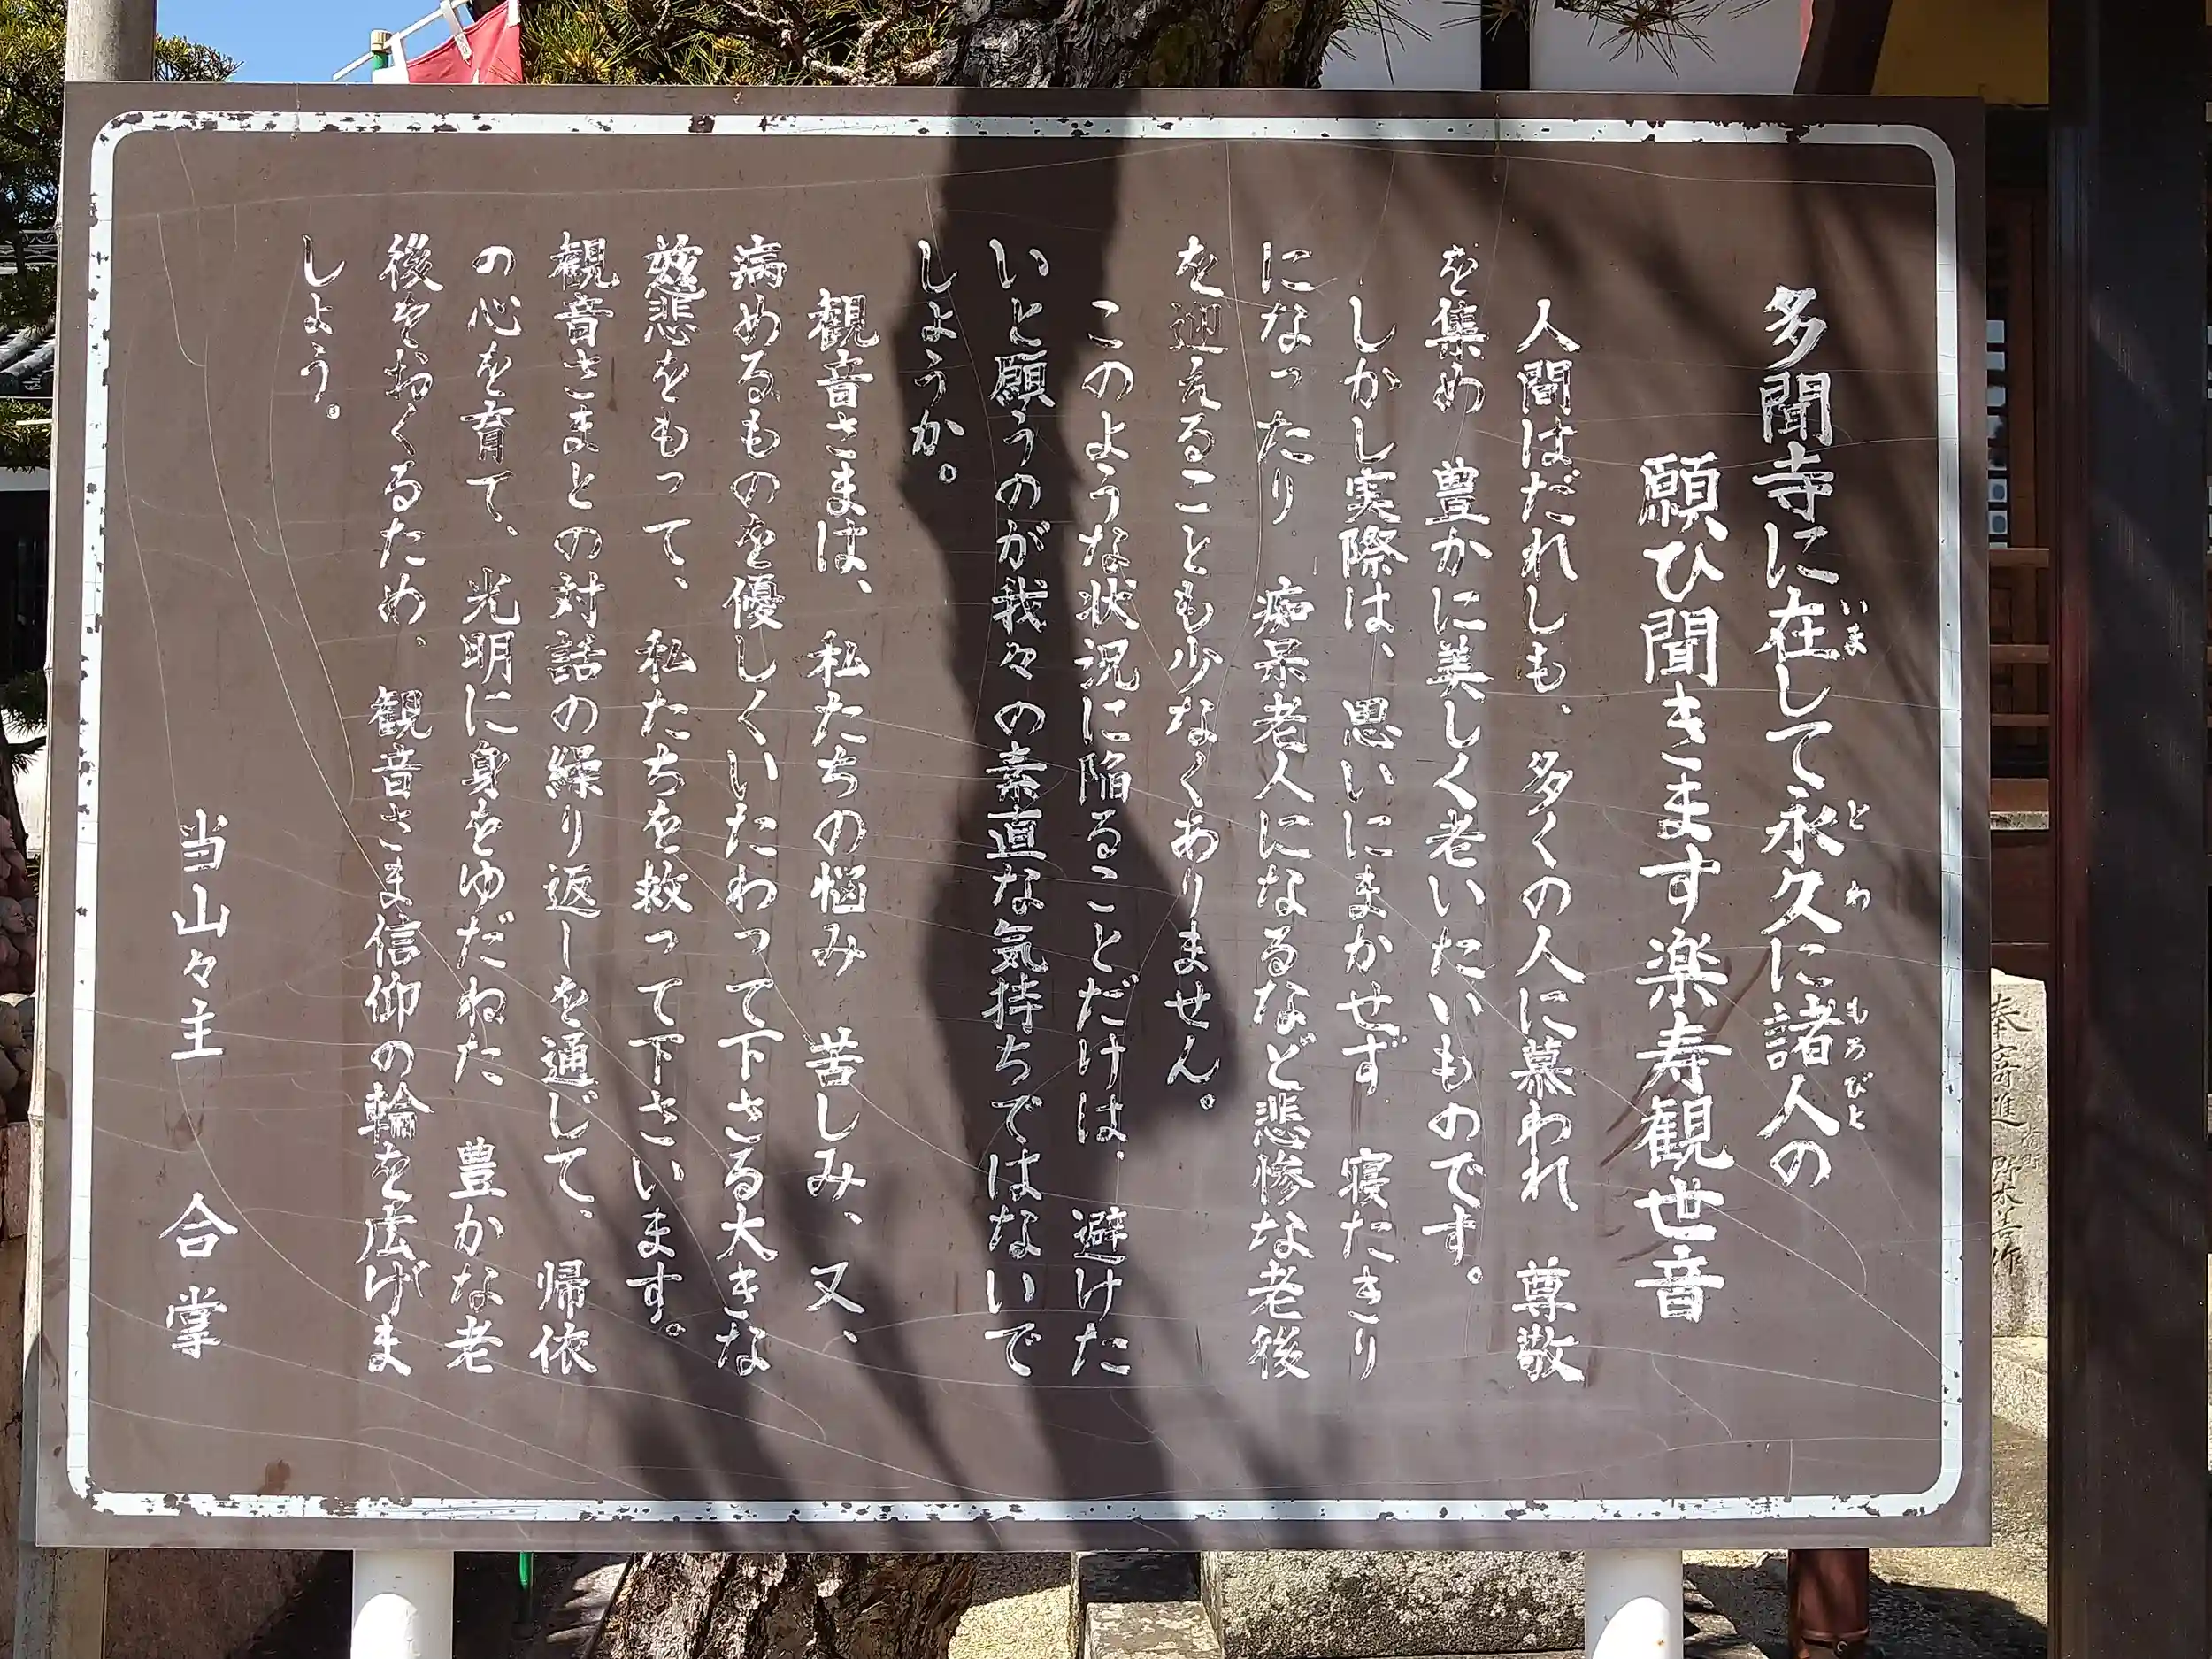 多聞寺に在して永久に諸人の
いま
とわ
もろびと
願ひ聞きます楽寿観世音
人間はだれしも、多くの人に慕われ 尊敬
を集め 豊かに美しく老いたいものです。
しかし実際は、思いにまかせず 寝たきり
になったり 痴呆老人になるなど悲惨な老後
を迎えることも少なくありません。
このような状況に陥ることだけは、避けた
いと願うのが我々の素直な気持ちではないで
しょうか。
観音さまは、私たちの悩み 苦しみ、又、
病めるものを優しくいたわって下さる大きな
慈悲をもって、私たちを救って下さいます。
観音さまとの対話の繰り返しを通じて、帰依
の心を育て、光明に身をゆだねた 豊かな老
後をおくるため、観音さま信仰の輪を広げま
しょう。
当山々主 合掌
奉寄進